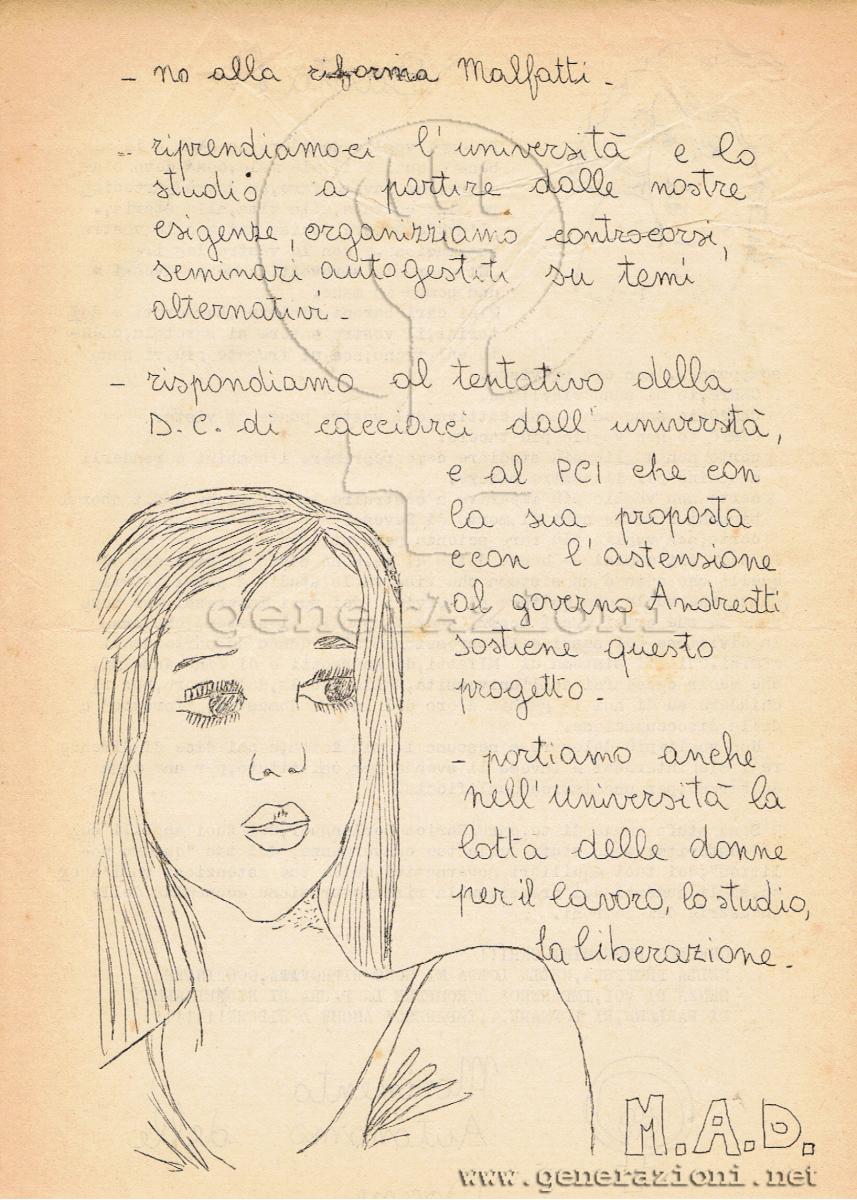 - no alla riforma Malfatti -
- riprendiamoci l'università e lo
studio a partire dalle nostre
esigenze, organizziamo controcorsi,
seminari autogestiti su temi
alternativi -
- rispondiamo al tentativo della
D.C. di cacciarci dall'università,
e al PCI che con
la sua proposta
e con l'astensione
al governo Andreotti
sostiene questo
progetto -
- portiamo anche
nell'Università la
lotta delle donne
per il lavoro, lo studio,
la liberazione -
M.A.D.
generAzioni
www.generazioni.net